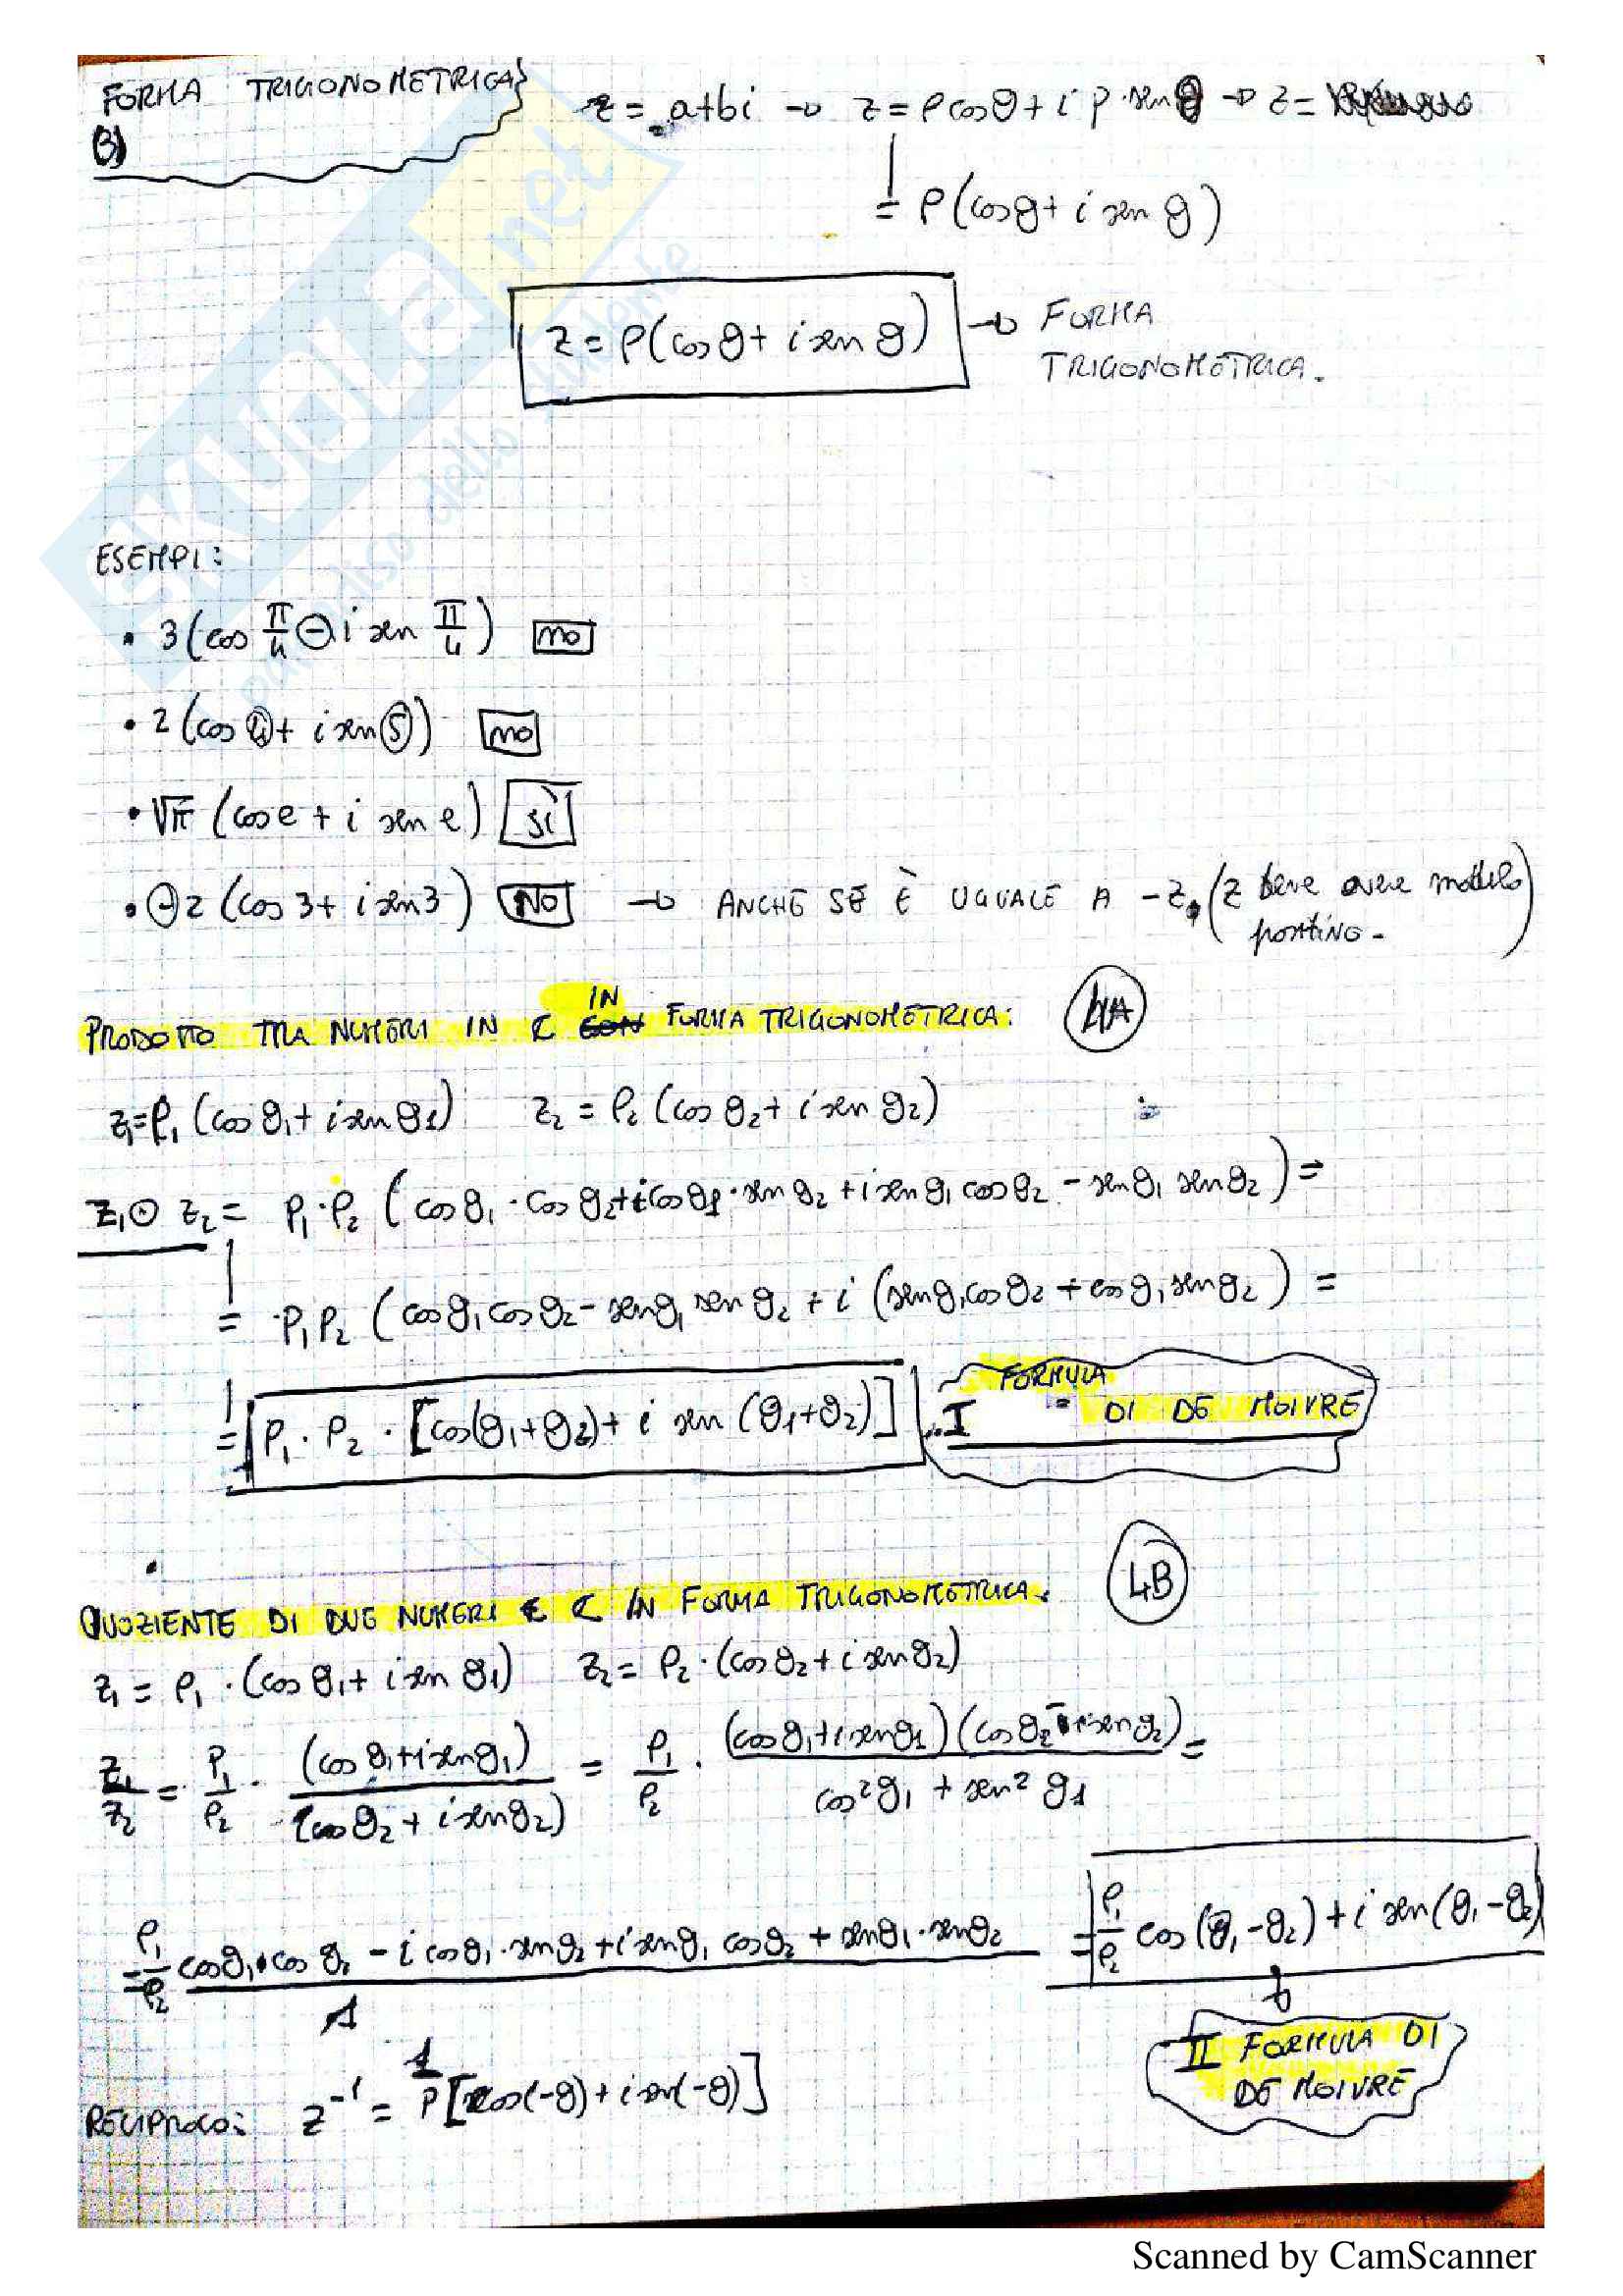 FORMA TRIGONOMETRICA
3)
z = a+bi → z = ρcosθ + i ρ·senθ → z =
= ρ(cosθ + i senθ)
z = ρ(cosθ + i senθ) → FORMA
TRIGONOMETRICA.
ESEMPI:
• 3(cos π/4 - i sen π/4) no
• 2(cos 4 + i sen 5) no
• √π (cos e + i sen e) sì
• -2 (cos 3 + i sen 3) NO → ANCHE SE È UGUALE A -z. (z deve avere modulo
positivo.)
PRODOTTO TRA NUMERI IN C IN FORMA TRIGONOMETRICA: 4A
z₁=ρ₁ (cosθ₁ + i senθ1) z₂ = ρ₂ (cosθ₂ + i senθ₂)
z₁⊙ z₂ = ρ₁·ρ₂ (cosθ₁·cosθ₂+icosθ1·senθ₂ + i senθ₁ cosθ₂ - senθ₁ senθ₂) =
= ·ρ₁ρ₂ (cosθ₁cosθ₂ - senθ₁ senθ₂ + i (senθ₁cosθ₂ + cosθ₁senθ₂) =
= ρ₁·ρ₂·[cos(θ₁+θ2) + i sen (θ1+θ2)] I FORMULA DI DE MOIVRE
QUOZIENTE DI DUE NUMERI ∈ C IN FORMA TRIGONOMETRICA. 4B
z₁ = ρ₁·(cosθ₁ + i senθ1) z₂ = ρ₂·(cosθ₂ + i senθ₂)
z₁/z₂ = ρ₁/ρ₂ · (cosθ₁+isenθ₁)/(cosθ₂ + i senθ₂) = ρ₁/ρ₂ · (cosθ₁+isenθ1)(cosθ₂ - isenθ₂)/cos²θ₁ + sen²θ1 =
= ρ₁/ρ₂ cosθ₁·cosθ₂ - i cosθ₁·senθ₂ + i senθ₁ cosθ₂ + senθ₁·senθ₂/1 = ρ₁/ρ₂ cos(θ₁-θ₂) + i sen(θ₁-θ₂)
II FORMULA DI
DE MOIVRE
RECIPROCO: z⁻¹ = 1/ρ [cos(-θ) + i sen(-θ)]
SKUOLA.net
paradiso dello studente
Scanned by CamScanner